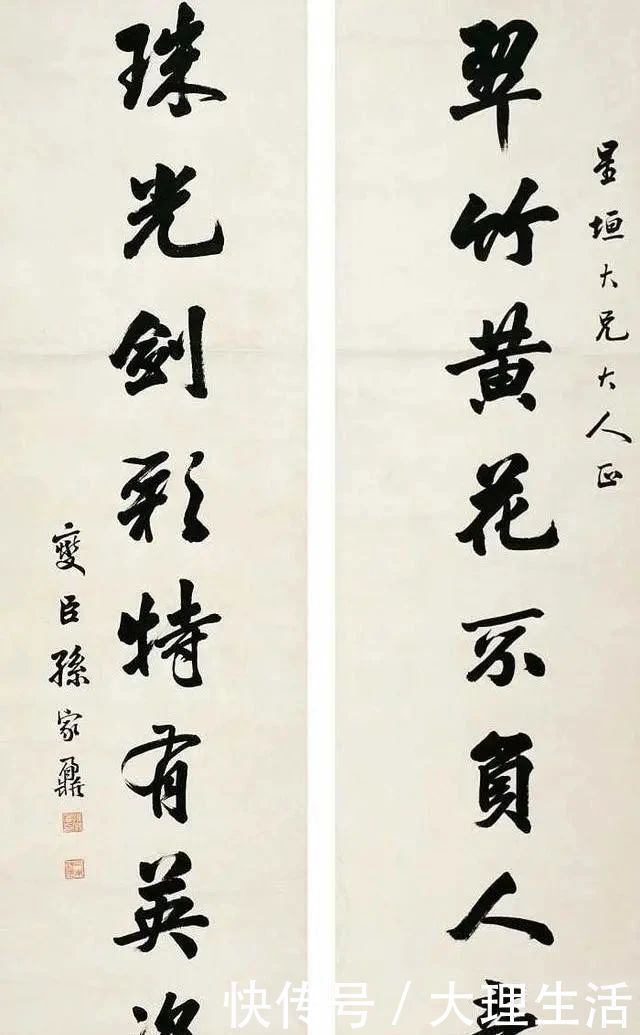 星垣大兄大人正
翠竹黄花不負人
珠光劍彩特有英
燮臣孫家鼐
快传号/大理生活